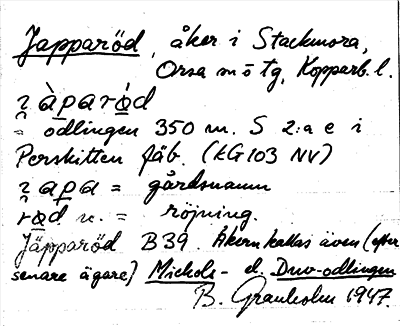 Japparöd, åker i Stackmora,
Orsa sn ö tg, Kopparb. l.
ɿ à p a r ò d
= odlingen 350 m. S 2:a e i
Perskitten fäb. (KG103 NV)
ɿ a p a = gårdsnamn
r o d n. = röjning.
Jäpparöd B39. Åkern kallas även (efter
senare ägare) Mickols- el. Duv-odlingen
B. Granholm 1947.